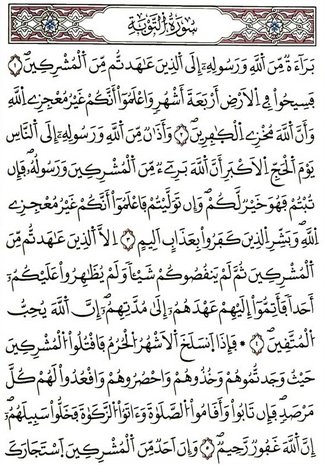 سُورَةُ التَّوْبَةِ
بَرَآءَةٌ مِّنَ اَ۬للَّهِ وَرَسُولِهِۦٓ إِلَى اَ۬لذِينَ عَٰهَدتُّم مِّنَ اَ۬لْمُشْرِكِينَۖ ١
فَسِيحُواْ فِے اِ۬لَارْضِ أَرْبَعَةَ أَشْهُرٖ وَاعْلَمُوٓاْ أَنَّكُمْ غَيْرُ مُعْجِزِے اِ۬للَّهِ
وَأَنَّ اَ۬للَّهَ مُخْزِے اِ۬لْكٰ۪فِرِينَۖ ٢ وَأَذَٰنٞ مِّنَ اَ۬للَّهِ وَرَسُولِهِۦٓ إِلَى اَ۬لنَّاسِ
يَوْمَ اَ۬لْحَجِّ اِ۬لَاكْبَرِ أَنَّ اَ۬للَّهَ بَرِےٓءٞ مِّنَ اَ۬لْمُشْرِكِينَ وَرَسُولُهُۥۖ فَإِن
تُبْتُمْ فَهُوَ خَيْرٞ لَّكُمْۖ وَإِن تَوَلَّيْتُمْ فَاعْلَمُوٓاْ أَنَّكُمْ غَيْرُ مُعْجِزِے
اِ۬للَّهِۖ وَبَشِّرِ اِ۬لذِينَ كَفَرُواْ بِعَذَابٍ اَلِيمٍ ٣ اِلَّا اَ۬لذِينَ عَٰهَدتُّم مِّنَ
اَ۬لْمُشْرِكِينَ ثُمَّ لَمْ يَنقُصُوكُمْ شَيْـٔاٗ وَلَمْ يُظَٰهِرُواْ عَلَيْكُمُۥٓ
أَحَداٗ فَأَتِمُّوٓاْ إِلَيْهِمْ عَهْدَهُمُۥٓ إِلَىٰ مُدَّتِهِمُۥٓۖ إِنَّ اَ۬للَّهَ يُحِبُّ
اُ۬لْمُتَّقِينَۖ ٤ ۞ فَإِذَا اَ۪نسَلَخَ اَ۬لَاشْهُرُ اُ۬لْحُرُمُ فَاقْتُلُواْ اُ۬لْمُشْرِكِينَ
حَيْثُ وَجَدتُّمُوهُمْ وَخُذُوهُمْ وَاحْصُرُوهُمْ وَاقْعُدُواْ لَهُمْ كُلَّ
مَرْصَدٖۖ فَإِن تَابُواْ وَأَقَامُواْ اُ۬لصَّلَوٰةَ وَءَاتَوُاْ اُ۬لزَّكَوٰةَ فَخَلُّواْ سَبِيلَهُمُۥٓۖ
إِنَّ اَ۬للَّهَ غَفُورٞ رَّحِيمٞۖ ٥ وَإِنَ اَحَدٞ مِّنَ اَ۬لْمُشْرِكِينَ اَ۪سْتَجَارَكَ